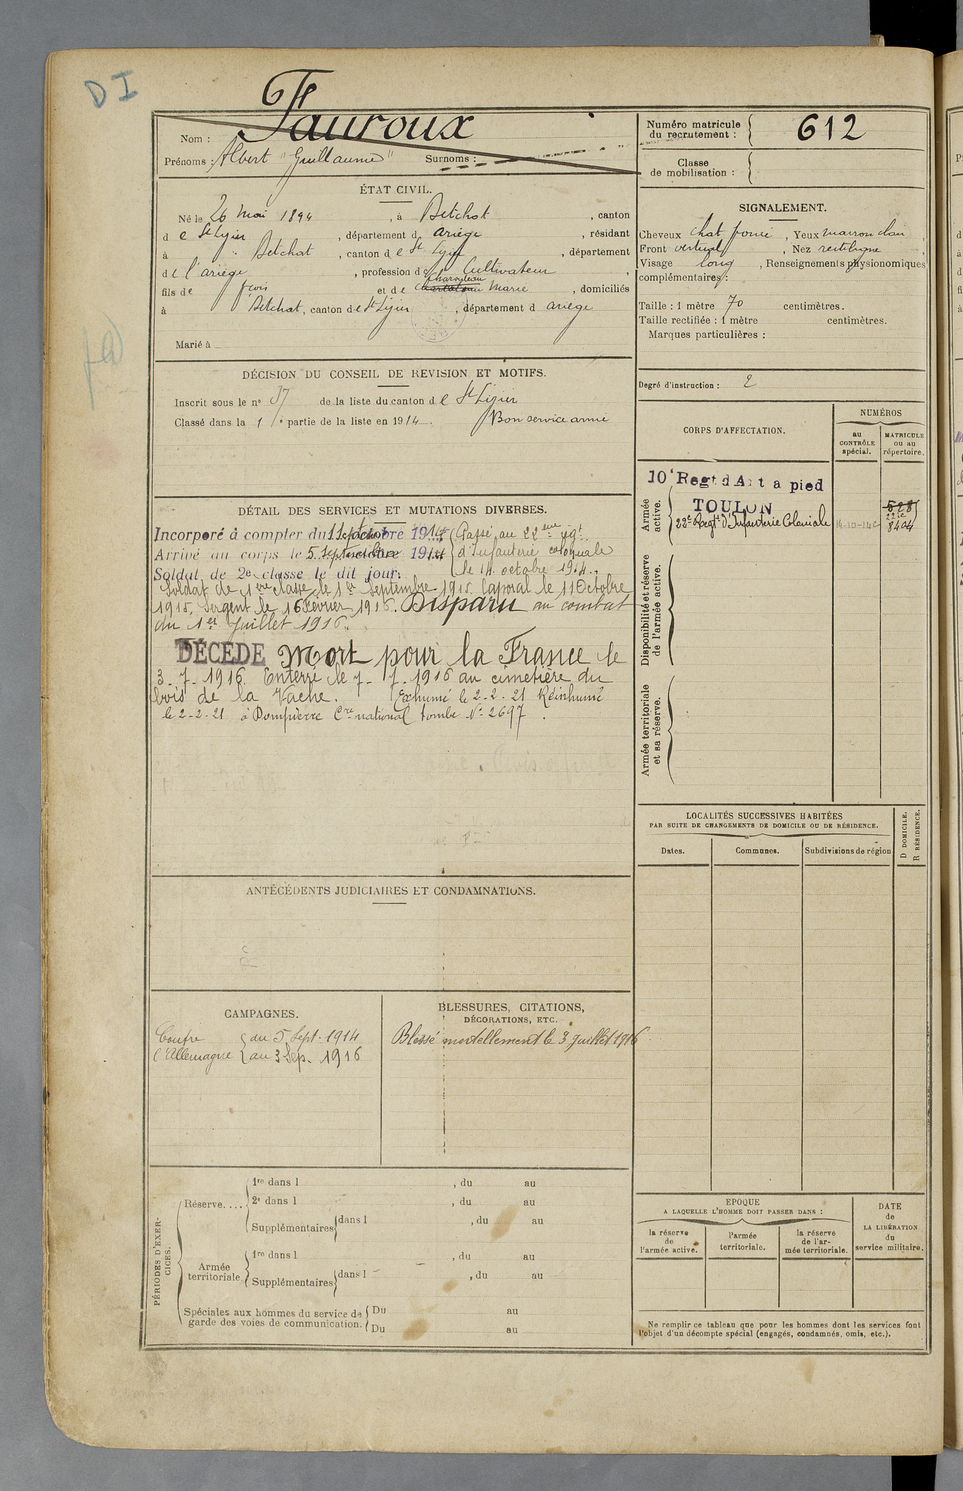 D I
Fauroux
Nom :
Prénoms : Albert "Guillaume" Surnoms :
ÉTAT CIVIL.
Né le 26 mai 1894, à Betchat, canton
de St Lizier, département d ariège, résidant
à Betchat, canton de St Lizier, département
de l'ariège, profession de Cultivateur,
fils de fçois et de Marie, domiciliés
à Betchat, canton de St Lizier, département d ariège
Marié à
DÉCISION DU CONSEIL DE REVISION ET MOTIFS.
Inscrit sous le n° 37 de la liste du canton de St Lizier
Classé dans la 1re partie de la liste en 1914. Bon service armé
DÉTAIL DES SERVICES ET MUTATIONS DIVERSES.
Incorporé à compter du 1 Septembre 1914
Arrivé au corps le 5 Septembre 1914
Soldat de 2e classe le dit jour.
Passé au 22ème rgt
d'Infanterie coloniale
le 14 octobre 1914.
Soldat de 1ère classe le 1er Septembre 1915. Caporal le 11 Octobre
1915, Sergent le 16 Février 1916. Disparu au combat
du 1er Juillet 1916.
DÉCÉDÉ Mort pour la France le
3-7-1916. Enterré le 7-7-1916 au cimetière du
bois de la Vache. Exhumé le 2-2-21 Réinhumé
le 2-2-21 à Dompierre Cre national tombe N° 2697.
ANTÉCÉDENTS JUDICIAIRES ET CONDAMNATIONS.
CAMPAGNES.
Contre
l'Allemagne
du 5 Sept. 1914
au 3 Sep. 1916
BLESSURES, CITATIONS,
DÉCORATIONS, ETC.
Blessé mortellement le 3 Juillet 1916
PÉRIODES D'EXERCICES.
Réserve....
1re dans l , du au
2e dans l , du au
Supplémentaires dans l , du au
Armée
territoriale
1re dans l , du au
Supplémentaires dans l , du au
Spéciales aux hommes du service de
garde des voies de communication.
Du au
Du au
Numéro matricule
du recrutement : 612
Classe
de mobilisation :
SIGNALEMENT.
Cheveux chat foncé, Yeux marron clair
Front vertical, Nez rectiligne
Visage long, Renseignements physionomiques
complémentaires :
Taille : 1 mètre 70 centimètres.
Taille rectifiée : 1 mètre centimètres.
Marques particulières :
Degré d'instruction : 2
CORPS D'AFFECTATION.
NUMÉROS
au
CONTRÔLE
spécial.
MATRICULE
OU AU
répertoire.
Armée
active.
10e Regt d'Art a pied
TOULON
22e Regt d'Infanterie Coloniale
8404
Disponibilité et réserve
de l'armée active.
Armée territoriale
et sa réserve.
LOCALITÉS SUCCESSIVES HABITÉES
PAR SUITE DE CHANGEMENTS DE DOMICILE OU DE RÉSIDENCE.
Dates.
Communes.
Subdivisions de région
D DOMICILE.
R RÉSIDENCE.
EPOQUE
A LAQUELLE L'HOMME DOIT PASSER DANS :
la réserve
de
l'armée active.
l'armée
territoriale.
la réserve
de l'ar-
mée territoriale.
DATE
de
LA LIBÉRATION
du
service militaire.
Ne remplir ce tableau que pour les hommes dont les services font
l'objet d'un décompte spécial (engagés, condamnés, omis, etc.).